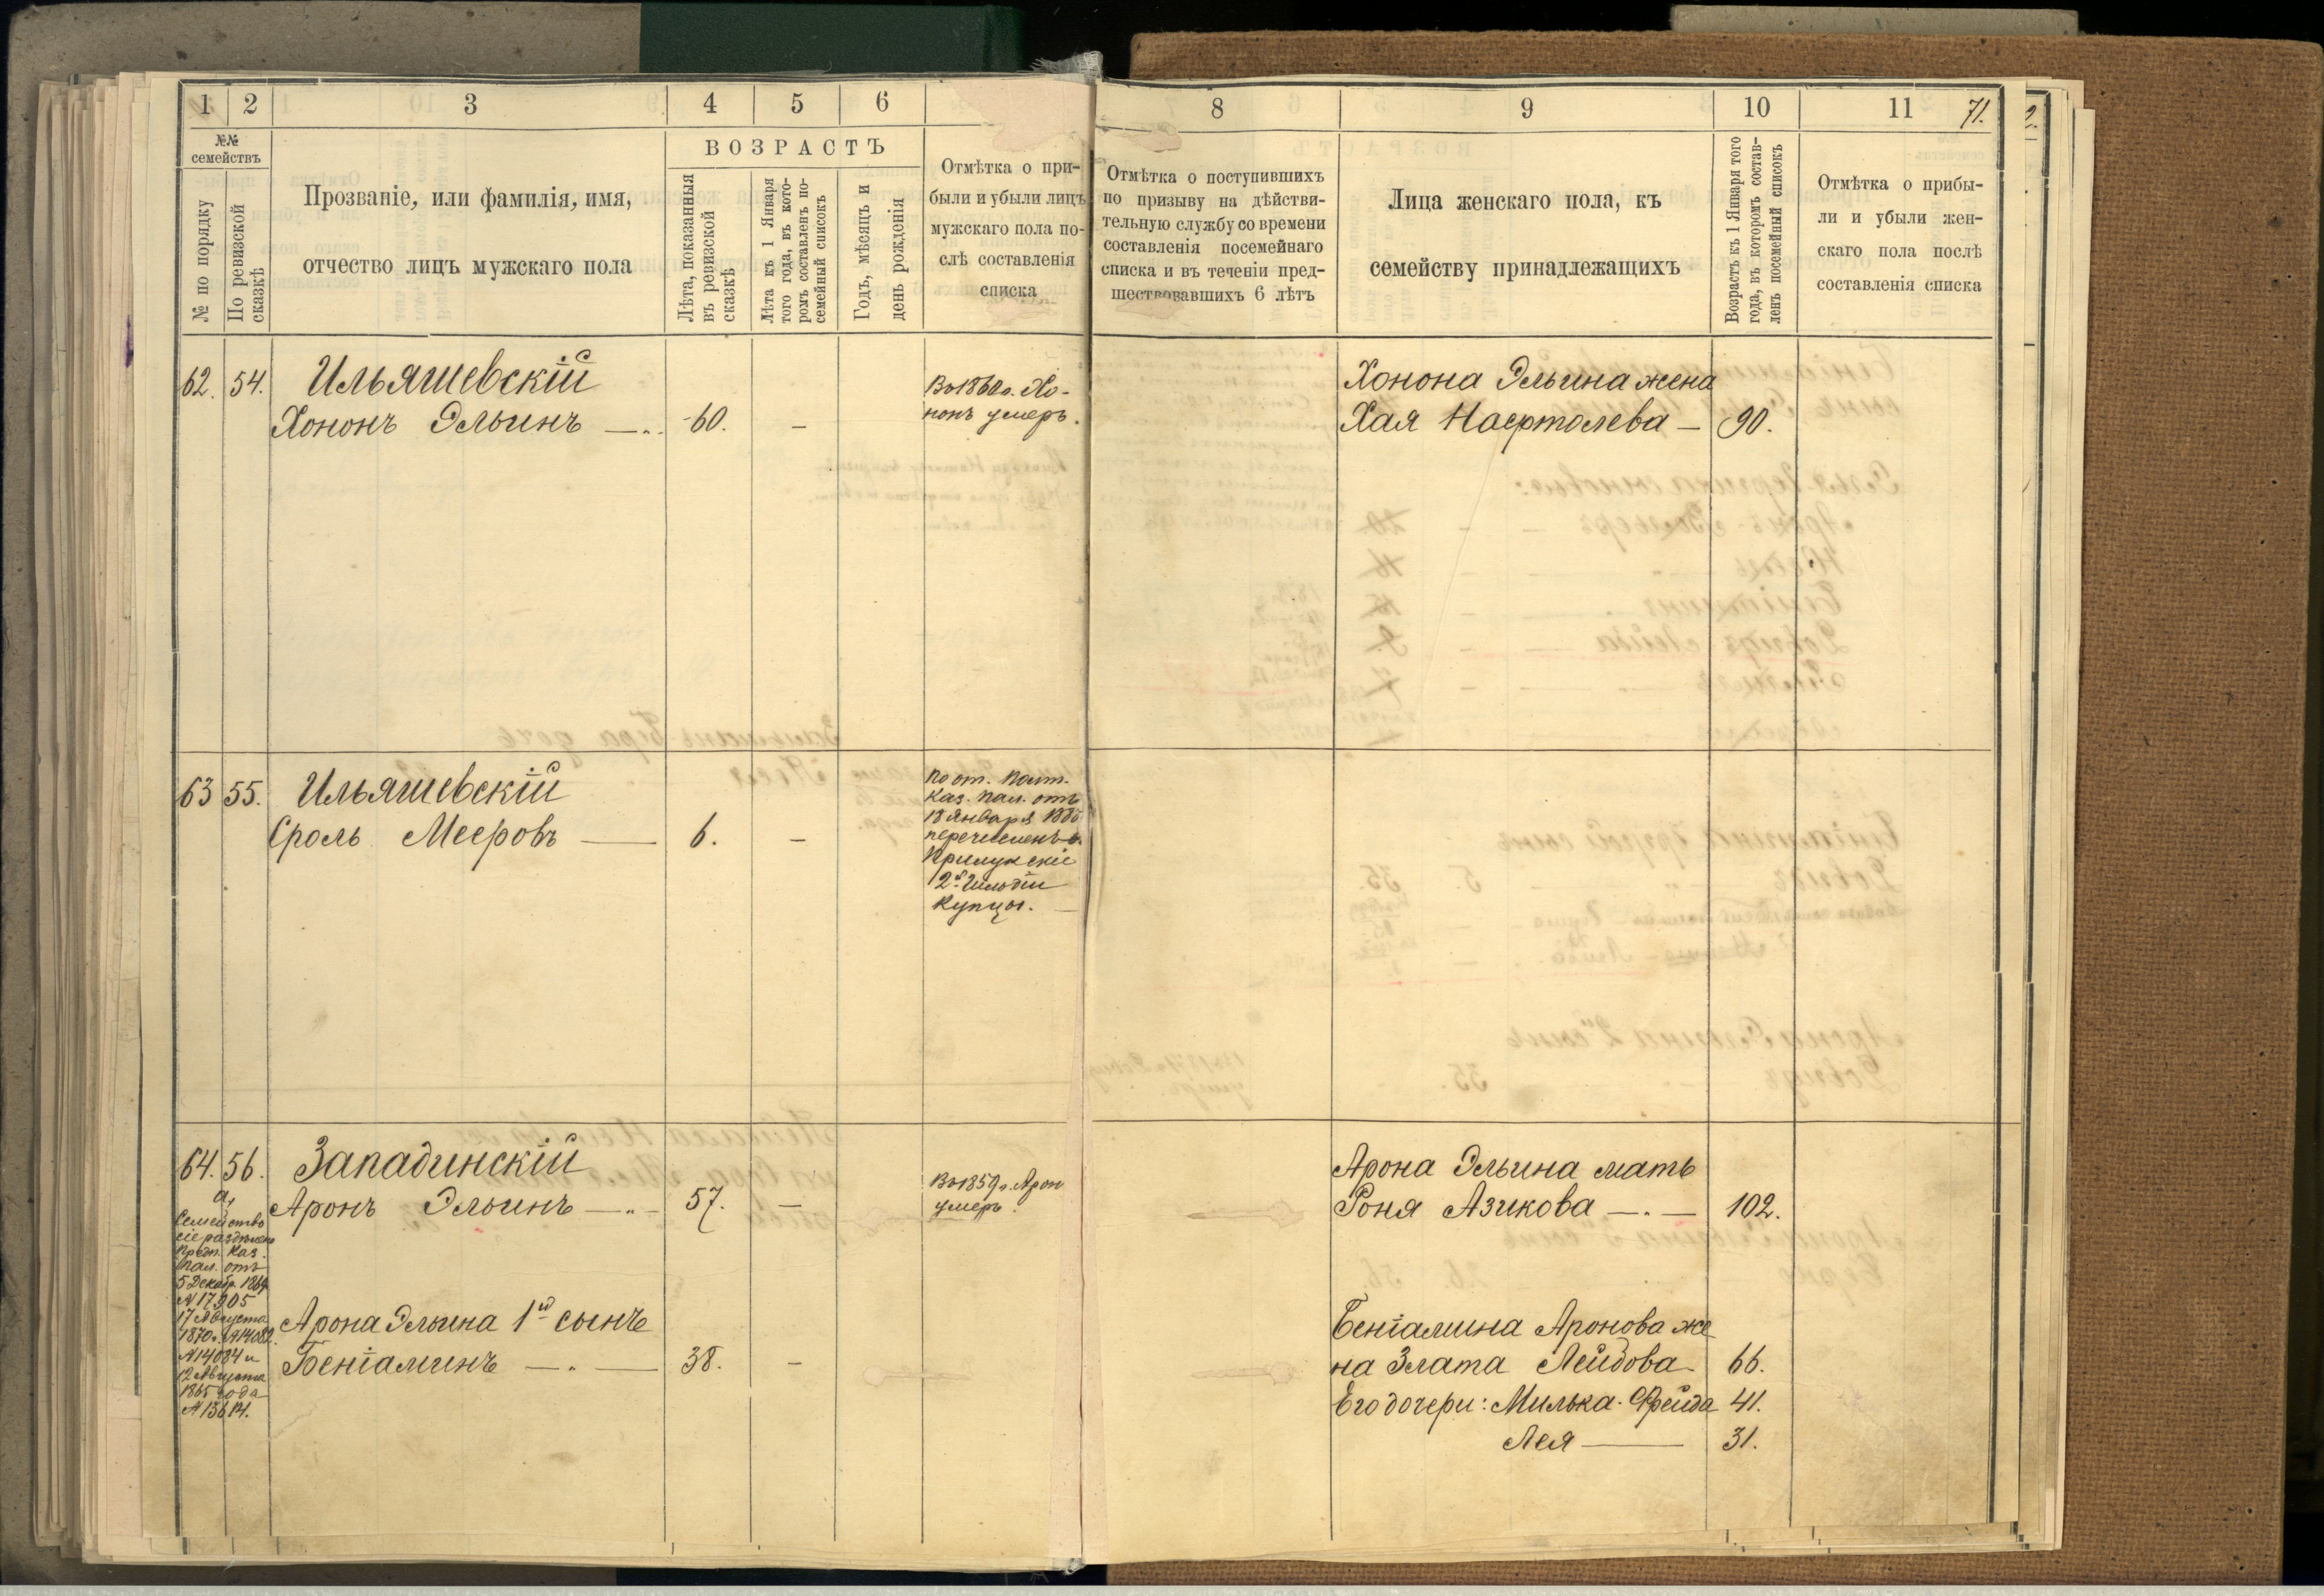 1 2 3 4 5 6
№№ семействъ
№ по порядку
По ревизской сказкѣ
Прозваніе, или фамилія, имя,
отчество лицъ мужскаго пола
ВОЗРАСТЪ
Лѣта, показанныя
въ ревизской
сказкѣ
Лѣта къ 1 Января
того года, въ кото-
ромъ составленъ по-
семейный списокъ
Годъ, мѣсяцъ и
день рожденія
Отмѣтка о при-
были и убыли лицъ
мужскаго пола по-
слѣ составленія
списка
62. 54. Ильяшевскій
Хононъ Эльинъ 60. —
Въ 1860 г. Хо-
нонъ умеръ.
63 55. Ильяшевскій
Сроль Мееровъ — 6. —
По от. Полт.
Каз. Пал. отъ
18 Января 188
перечисленъ в
Прилукскіе
2й Гильдіи
Купцы.
64. 56. Западинскій
а,
Аронъ Эльинъ 57. —
Въ 1859 г. Арон
умеръ.
Семейство
сіе раздѣлено
предп. Каз.
Пал. отъ
5 Декабр. 1869
№ 17905
17 Августа
1870 г. № 14082.
№ 14084 и
12 Августа
1865 года
№ 13614.
Арона Эльина 1й сынъ
Беніаминъ 38. —
8 9 10 11 71.
Отмѣтка о поступившихъ
по призыву на дѣйстви-
тельную службу со времени
составленія посемейнаго
списка и въ теченіи пред-
шествовавшихъ 6 лѣтъ
Лица женскаго пола, къ
семейству принадлежащихъ
Возрастъ къ 1 Января того
года, въ которомъ состав-
ленъ посемейный списокъ
Отмѣтка о прибы-
ли и убыли жен-
скаго пола послѣ
составленія списка
Хонона Эльина жена
Хая Насртолева — 90.
Арона Эльина мать
Роня Азикова 102.
Беніамина Аронова же
на Злата Лейдова 66.
Его дочери: Милька-Фрейда 41.
Лея — 31.